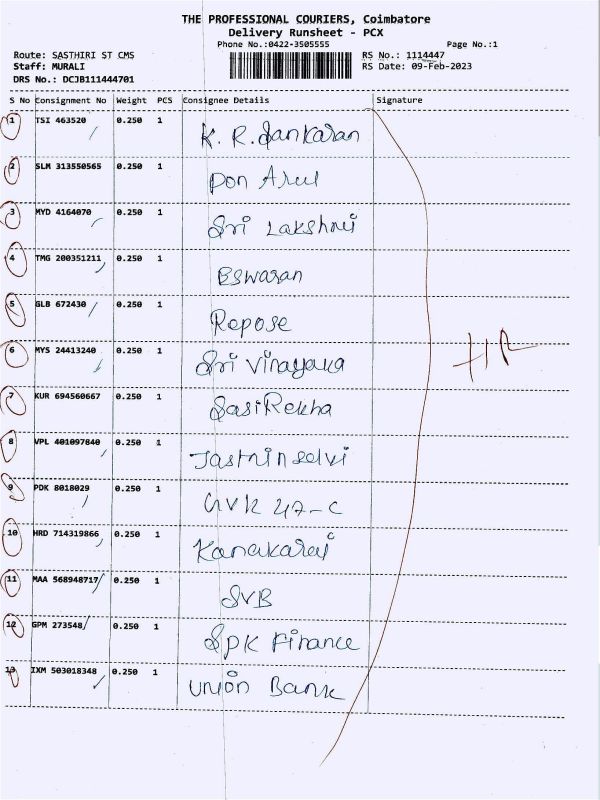 THE PROFESSIONAL COURIERS, Coimbatore
Delivery Runsheet - PCX
Phone No.:0422-3505555 Page No.:1
Route: SASTHIRI ST CMS RS No.: 1114447
Staff: MURALI RS Date: 09-Feb-2023
DRS No.: DCJB111444701
S No Consignment No Weight PCS Consignee Details Signature
1 TSI 463520 0.250 1 K. R. Sankaran
2 SLM 313550565 0.250 1 Pon Arul
3 MYD 4164070 0.250 1 Sri Lakshmi
4 TMG 200351211 0.250 1 Eswaran
5 GLB 672430 0.250 1 Repose
6 MYS 24413240 0.250 1 Sri Vinayaka
7 KUR 694560667 0.250 1 SasiRekha
8 VPL 401097840 0.250 1 Jasminselvi
9 PDK 8018029 0.250 1 GVR 47-C
10 HRD 714319866 0.250 1 Kanakaraj
11 MAA 568948717 0.250 1 SVB
12 GPM 273548 0.250 1 SPK Finance
13 IXM 503018348 0.250 1 Union Bank